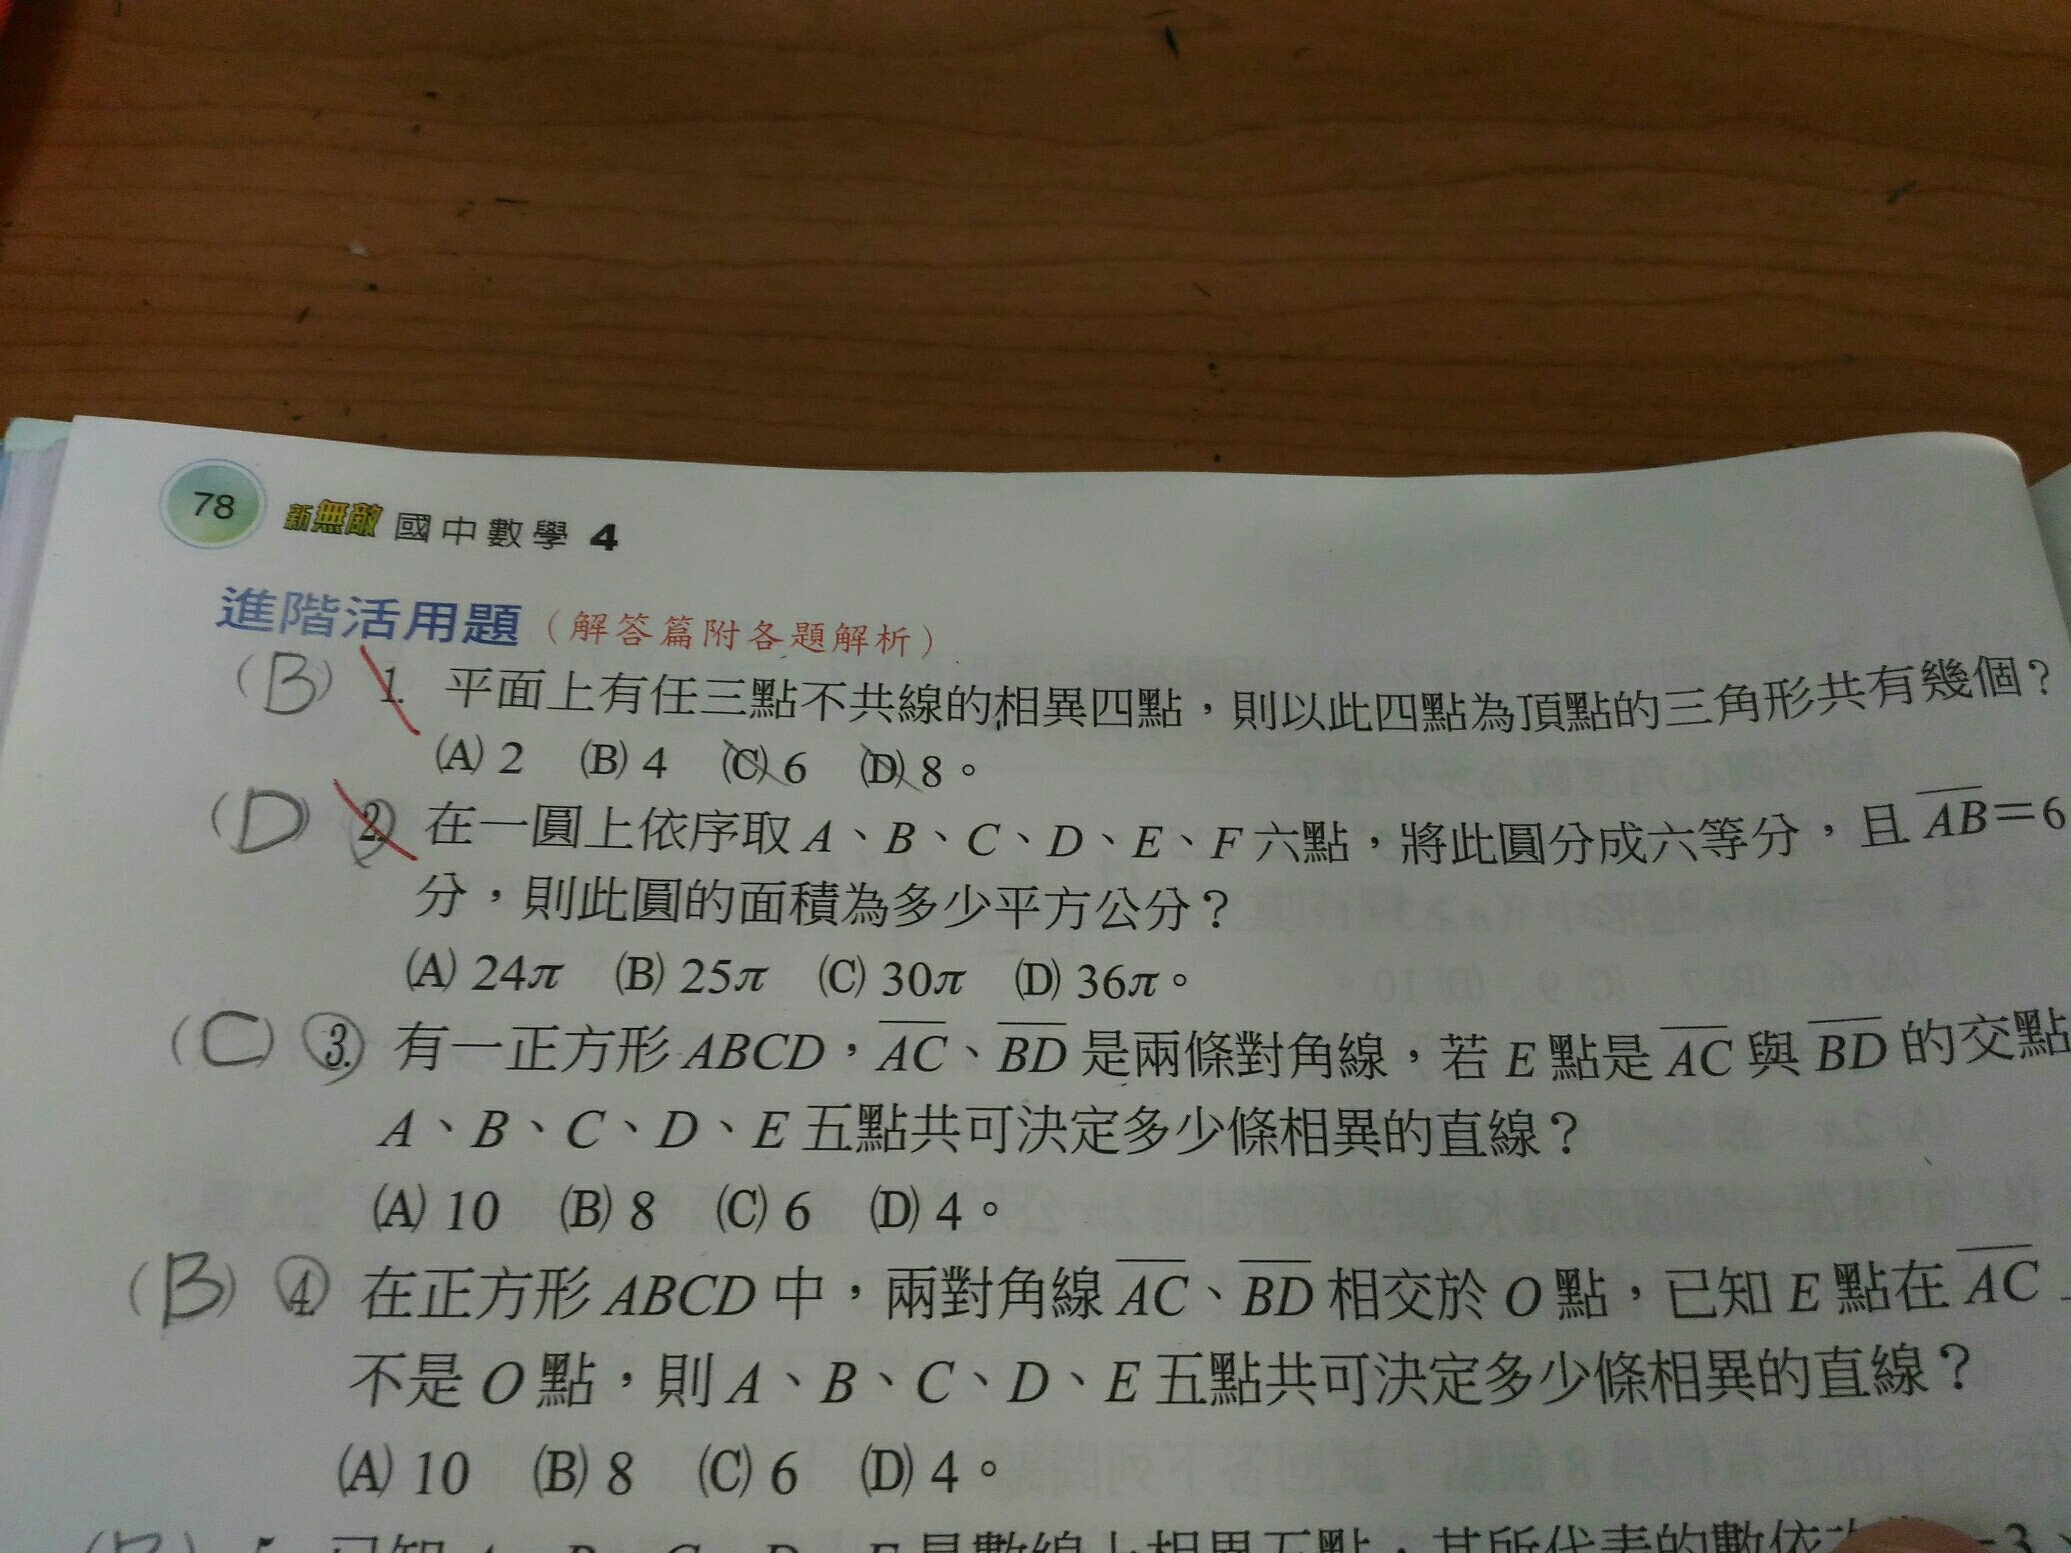 78 新無敵 國中數學 4
進階活用題(解答篇附各題解析)
(B) 1. 平面上有任三點不共線的相異四點，則以此四點為頂點的三角形共有幾個？
(A) 2 (B) 4 (C) 6 (D) 8。
(D) 2. 在一圓上依序取 A、B、C、D、E、F 六點，將此圓分成六等分，且 AB=6
分，則此圓的面積為多少平方公分？
(A) 24π (B) 25π (C) 30π (D) 36π。
(C) 3. 有一正方形 ABCD，AC、BD 是兩條對角線，若 E 點是 AC 與 BD 的交點
A、B、C、D、E 五點共可決定多少條相異的直線？
(A) 10 (B) 8 (C) 6 (D) 4。
(B) 4. 在正方形 ABCD 中，兩對角線 AC、BD 相交於 O 點，已知 E 點在 AC
不是 O 點，則 A、B、C、D、E 五點共可決定多少條相異的直線？
(A) 10 (B) 8 (C) 6 (D) 4。
5. 已知 A、B、C、D、E 是數線上相異五點，其所代表的數依